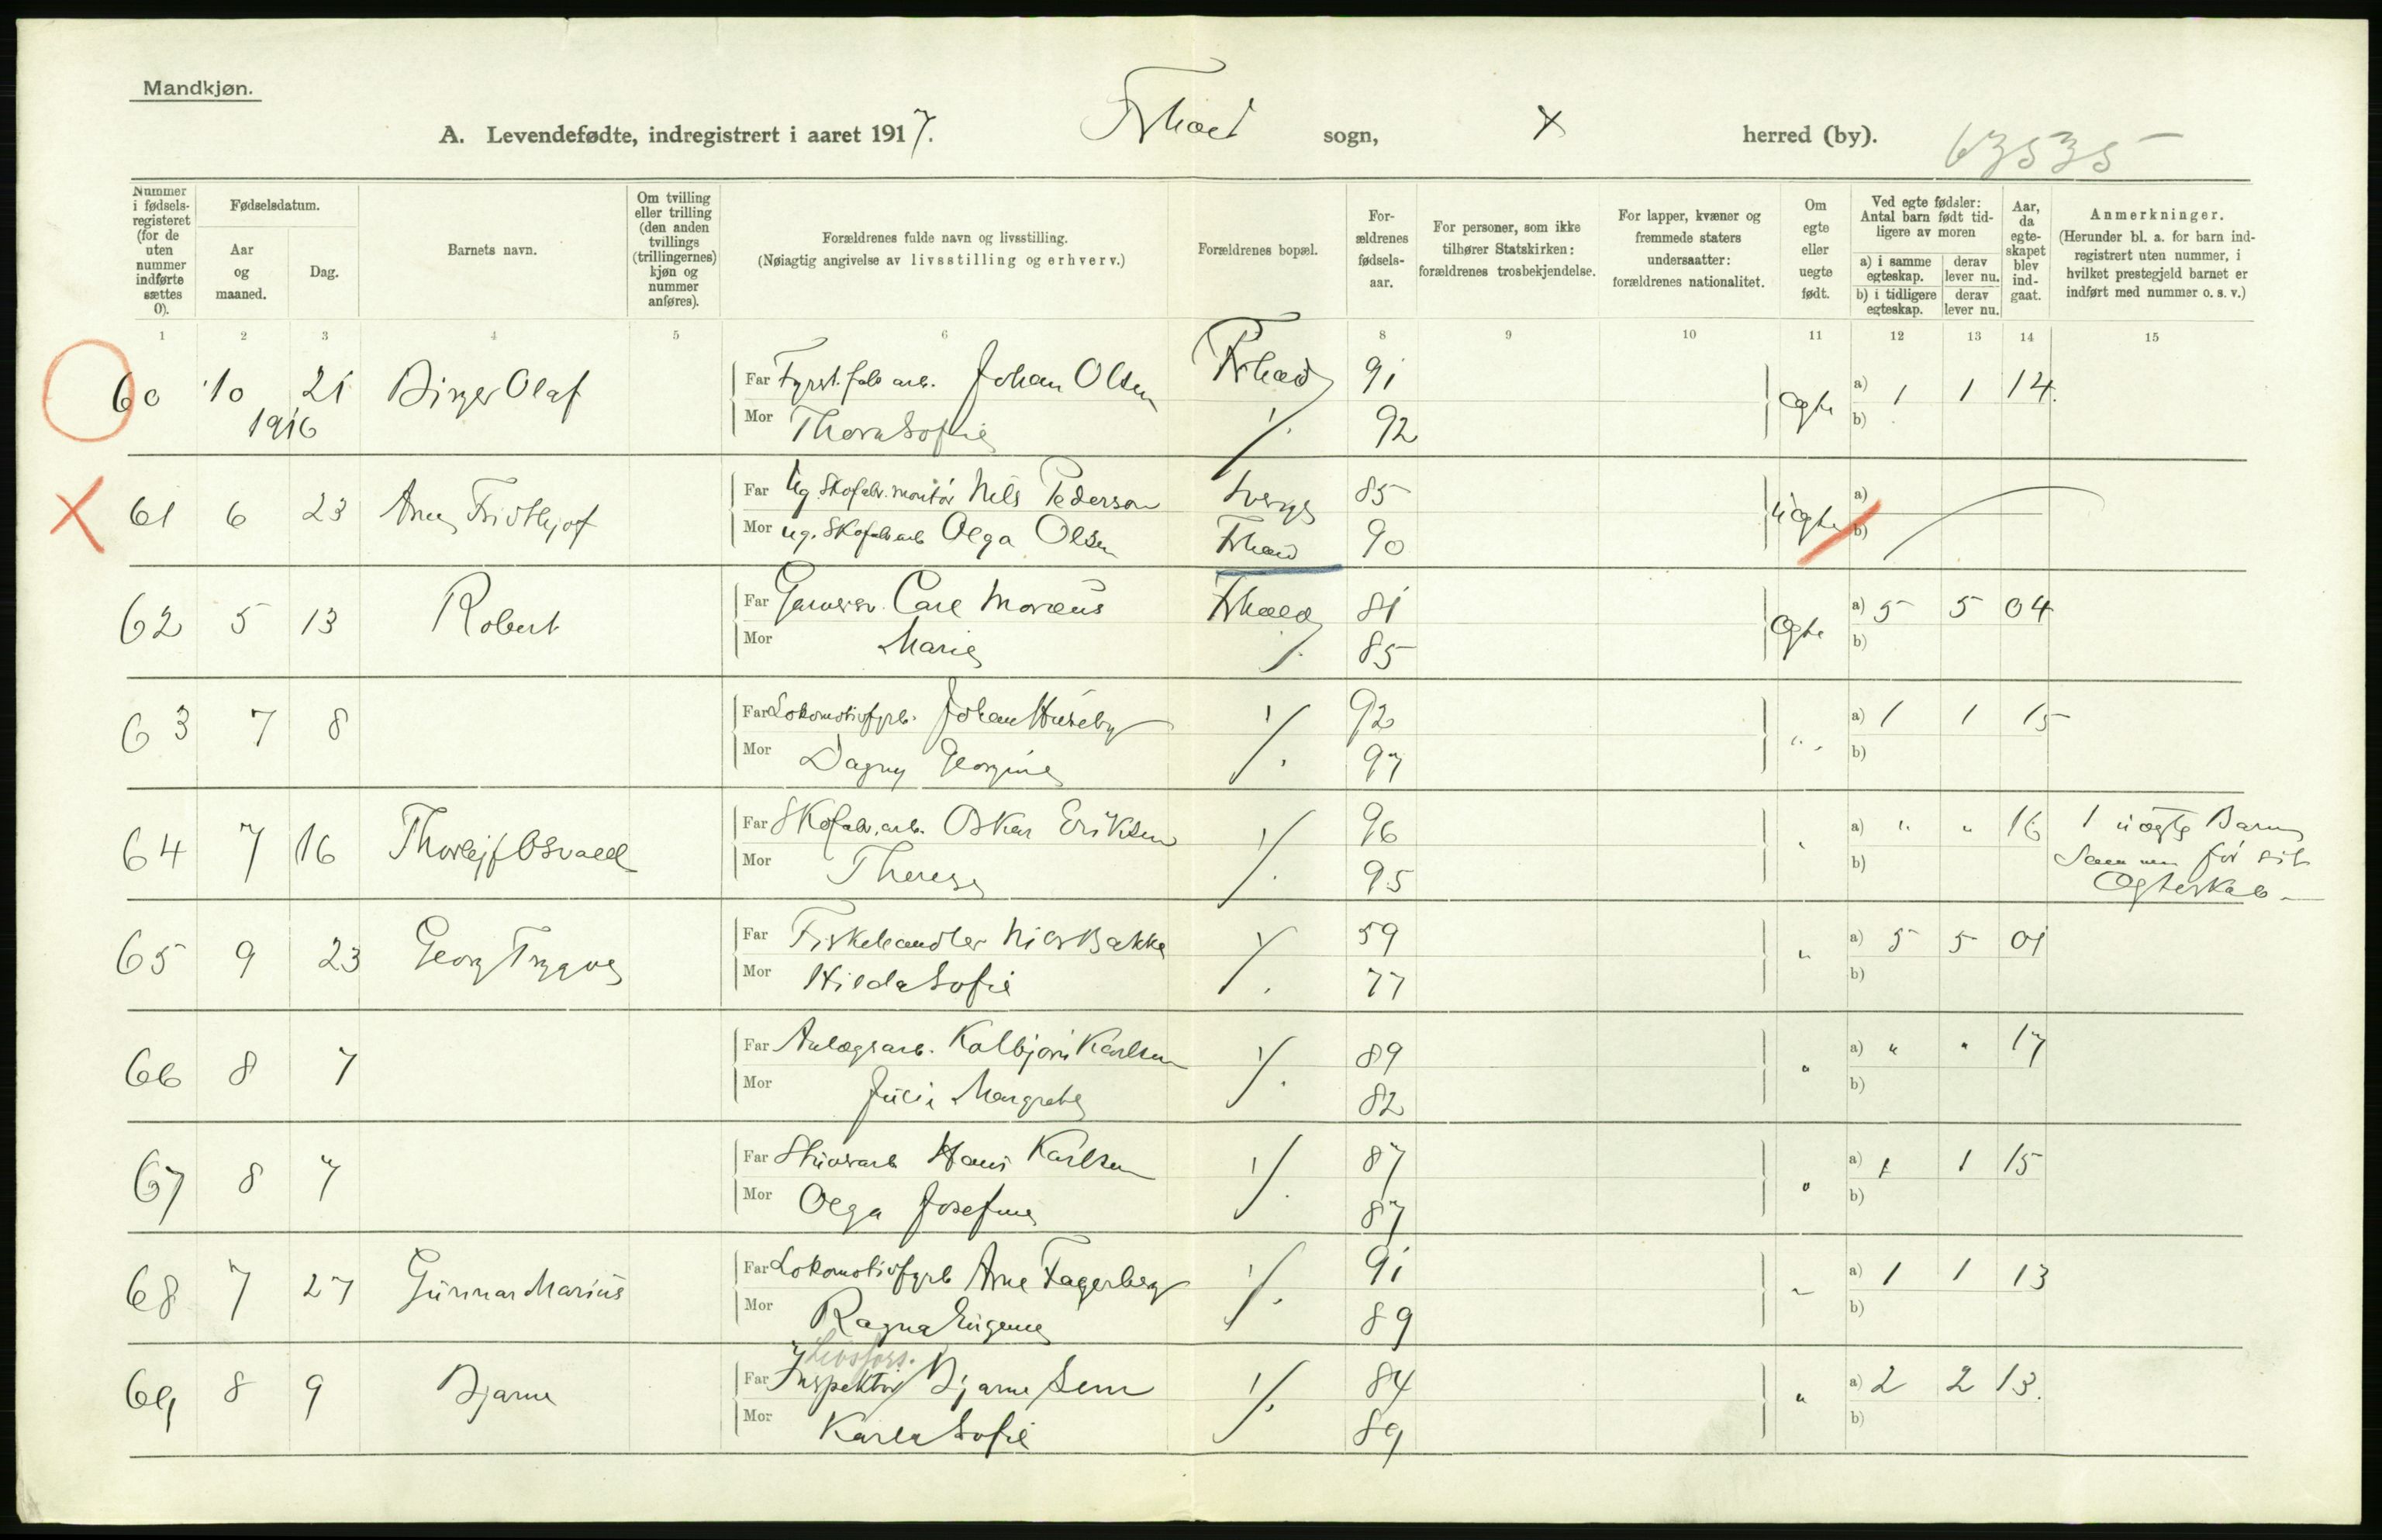 Mandkjøn.
A. Levendefødte, indregistrert i aaret 1917. Frhald sogn, x herred (by). 63535
Nummer i fødselsregisteret (for de uten nummer indførte sættes 0).
Fødselsdatum.
Aar og maaned.
Dag.
Barnets navn.
Om tvilling eller trilling (den anden tvillings (trillingernes) kjøn og nummer anføres).
Forældrenes fulde navn og livsstilling.
(Nøiagtig angivelse av livsstilling og erhverv.)
Forældrenes bopæl.
For-ældrenes fødsels-aar.
For personer, som ikke tilhører Statskirken: forældrenes trosbekjendelse.
For lapper, kvæner og fremmede staters undersaatter: forældrenes nationalitet.
Om egte eller uegte født.
Ved egte fødsler: Antal barn født tid-ligere av moren
a) i samme egteskap. derav lever nu.
b) i tidligere egteskap. derav lever nu.
Aar, da egte-skapet blev ind-gaat.
Anmerkninger.
(Herunder bl. a. for barn ind-registrert uten nummer, i hvilket prestegjeld barnet er indført med nummer o. s. v.)
1 2 3 4 5 6 8 9 10 11 12 13 14 15
60 10 21 Birger Olaf Far Fyrst. fab arb. Johan Olsen Frhald 91 egte a) 1 1 14.
1916 Mor Thora Sofie ./. 92 b)
61 6 23 Arne Fridthjof Far Ug. Skofabr. montör Nils Pederson Sverge 85 uegte a)
Mor ug. Skofabarb Olga Olsen Frhald 90 b)
62 5 13 Robert Far Carl Moræus Frhald 81 egte a) 5 5 04
Mor Marie ./. 85 b)
63 7 8 Far Lokomotivfyrb. Johan Huseby ./. 92 " a) 1 1 15
Mor Dagny Georgine 97 b)
64 7 16 Thorleif Osvald Far Skofabr. arb. Oskar Eriksen ./. 96 " a) " " 16 1 uægte Barn
Mor Therese 95 b) Sammen før sit
Egteskab.
65 9 23 Georg Trygve Far Fiskehandler Nils Bakke ./. 59 " a) 5 5 01
Mor Hilda Sofie 77 b)
66 8 7 Far Anlægsarb. Kolbjørn Karlsen ./. 89 " a) " " 17
Mor Julie Margrethe 82 b)
67 8 7 Far Hans Karlsen ./. 87 " a) 1 1 15
Mor Olga Josefine 87 b)
68 7 27 Gunnar Marius Far Lokomotivfyrb Arne Fagerberg ./. 91 " a) 1 1 13
Mor Ragna Eugenie 89 b)
Livsfors.
69 8 9 Bjarne Far Inspektør Bjarne Sem ./. 84 " a) 2 2 13.
Mor Karla Sofie 89 b)